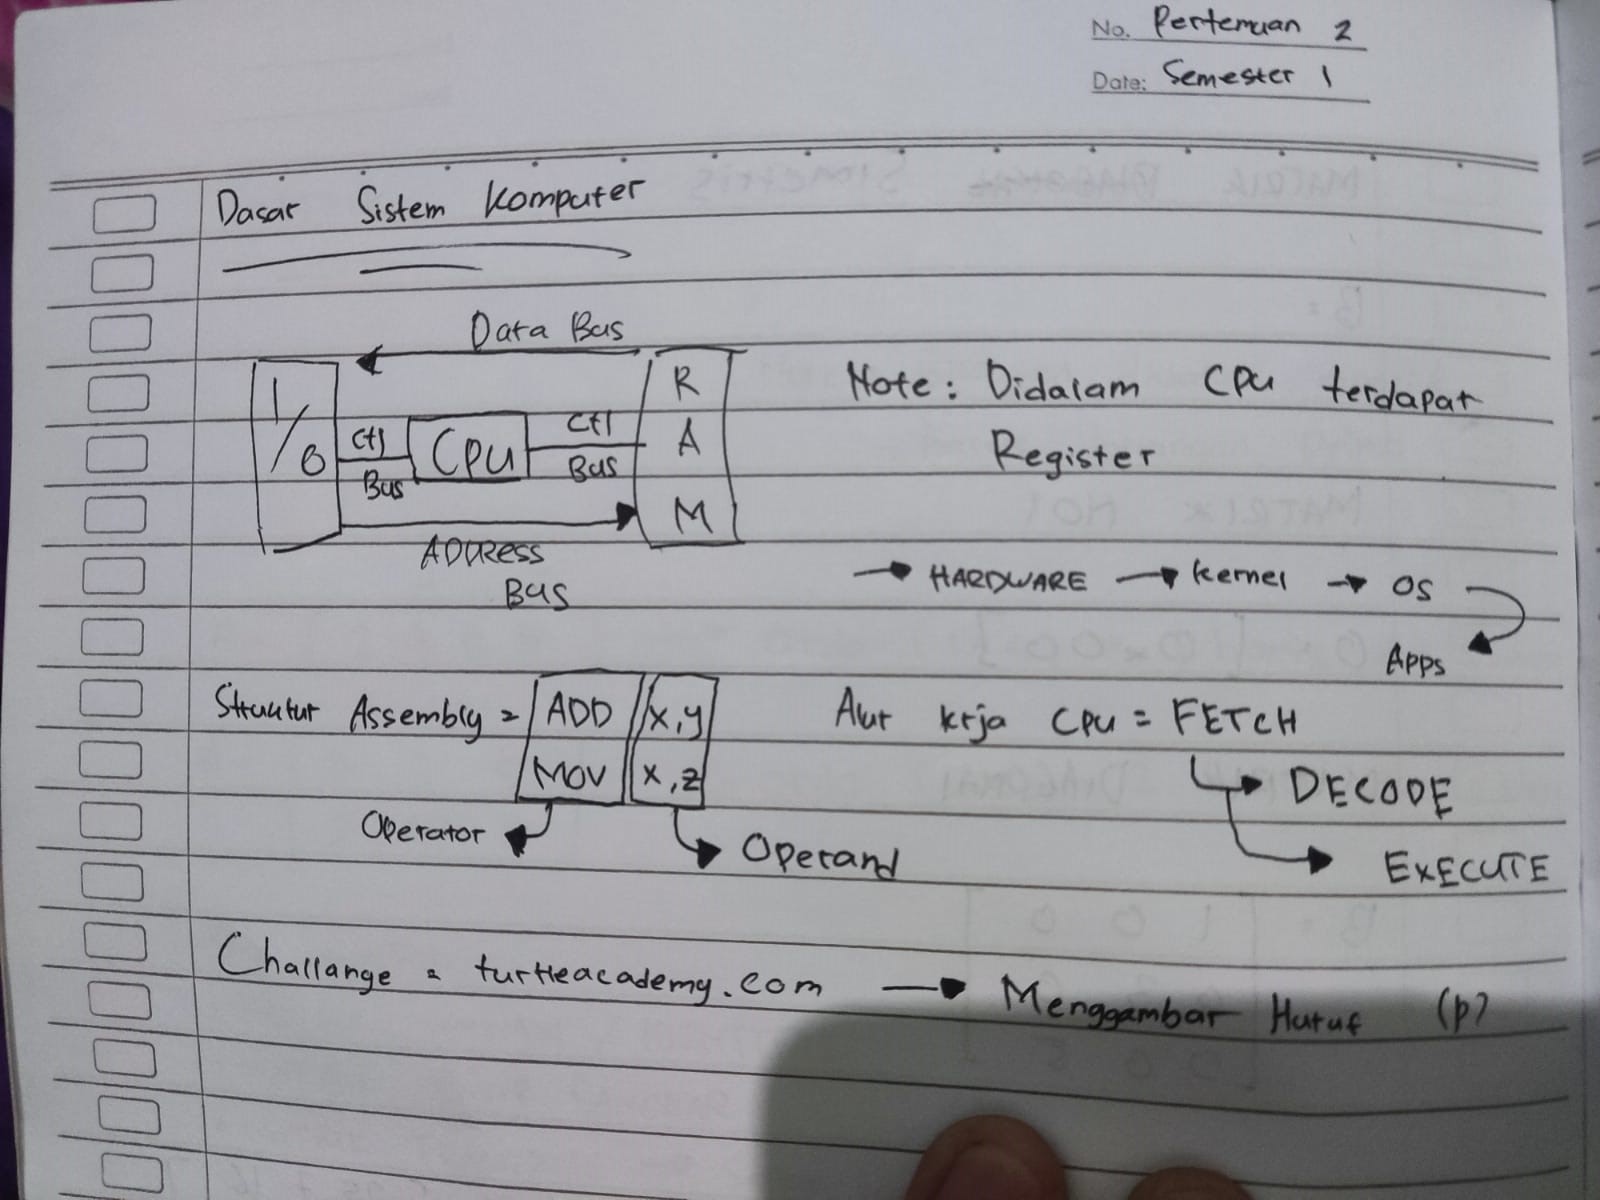 No. Pertemuan 2
Date: Semester 1
Dasar Sistem Komputer
Data Bus
I/O
Ctl Bus
CPU
Ctl Bus
RAM
ADDRESS BUS
Note: Didalam CPU terdapat
Register
HARDWARE → kernel → OS
Apps
Struktur Assembly = ADD x,y
MOV x,z
Operator
Operand
Alur krja CPU = FETCH
DECODE
EXECUTE
Challange = turtleacademy.com → Menggambar Huruf (P)